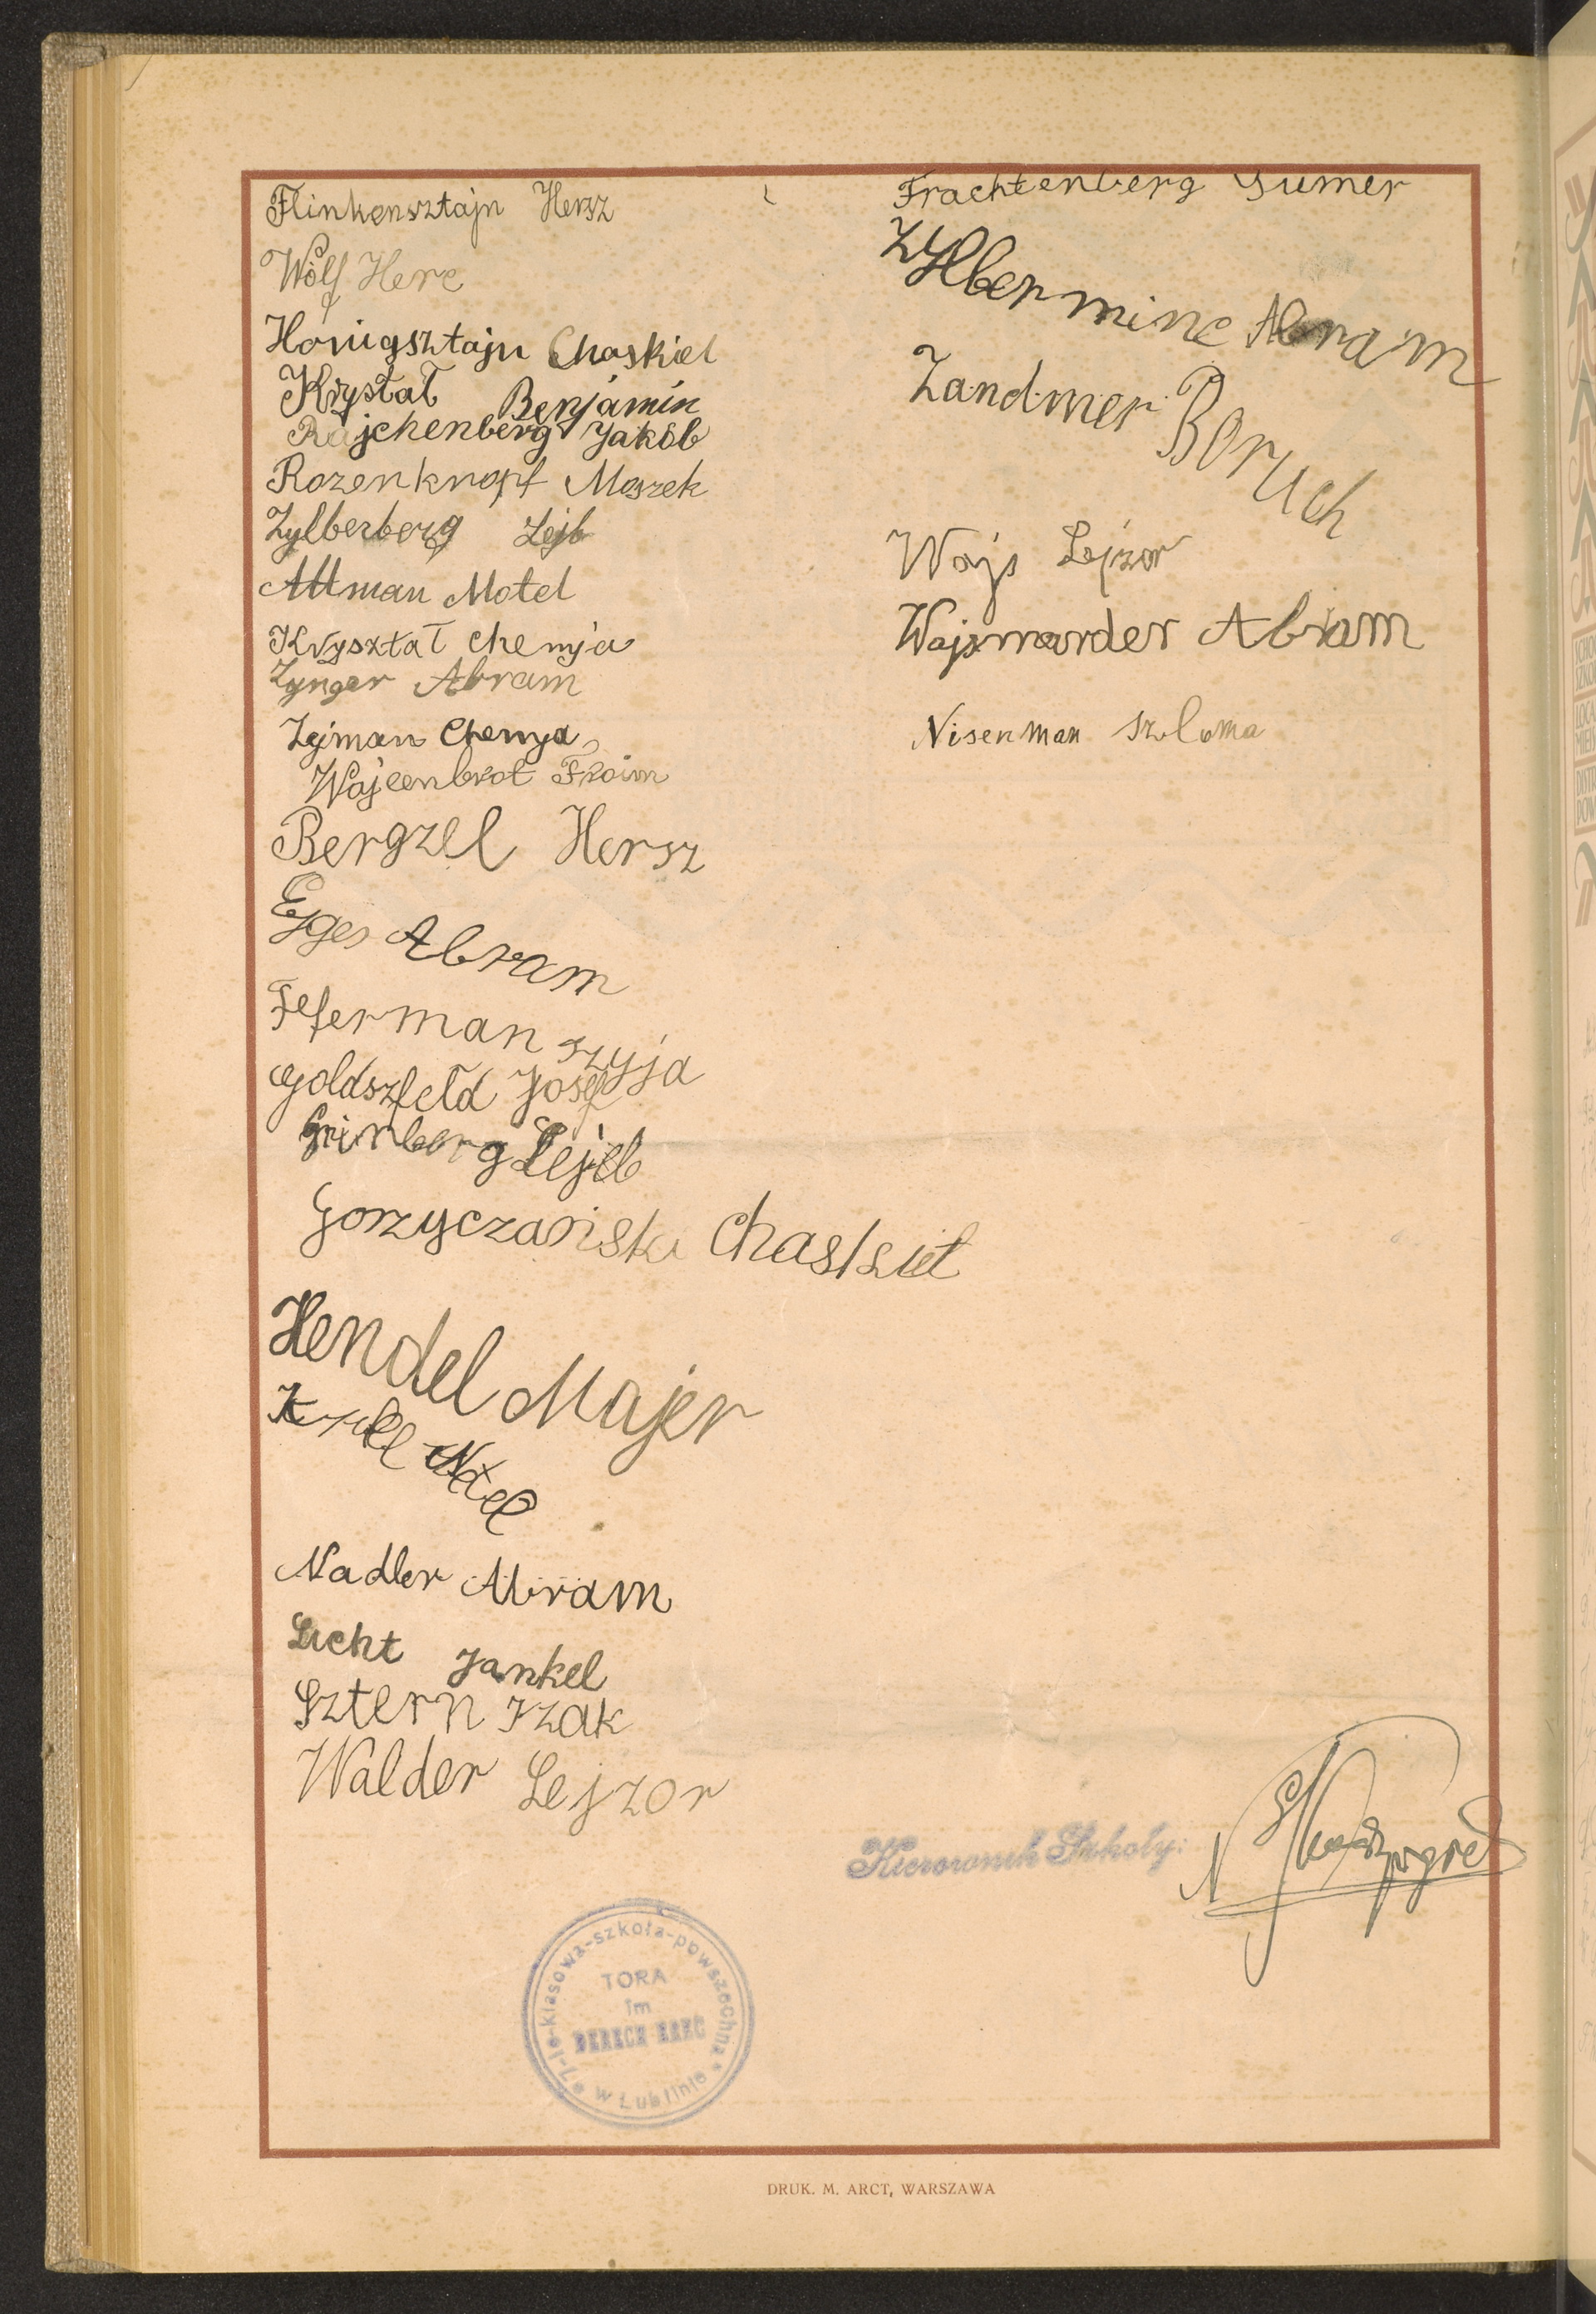 Flinkensztajn Hersz
Wolf Herc
Honigsztajn Chaskiel
Kryształ Benjamin
Rajchenberg Jakób
Rozenknopf Moszek
Zylberberg Lejb
Altman Motel
Kryształ Chemja
Zynger Abram
Zejman Chemja
Wajcenbrot Froim
Bergzel Hersz
Ejges Abram
Feferman Szyja
Goldszfeld Josef
Grinberg Lejb
Gorzyczański Chaskiel
Hendel Majer
Nadler Abram
Licht Jankel
Sztern Izak
Walder Lejzor
Frachtenberg Sumer
Zylberminc Abram
Zandmer Boruch
Wajs Lejzor
Wajsmarder Abram
Nisenman Szloma
Kierownik Szkoły:
7-io-klasowa-szkoła-powszechna
TORA
im
DERECH EREC
w Lublinie
DRUK. M. ARCT, WARSZAWA